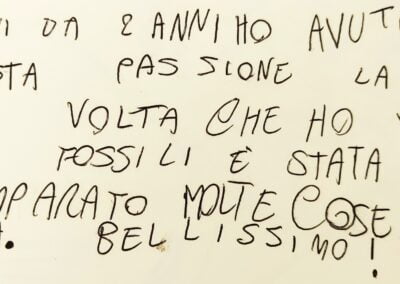 I DA 2 ANNI HO AVUT
STA PASSIONE LA
VOLTA CHE HO
FOSSILI È STATA
MPARATO MOLTE COSE
A. BELLISSIMO!